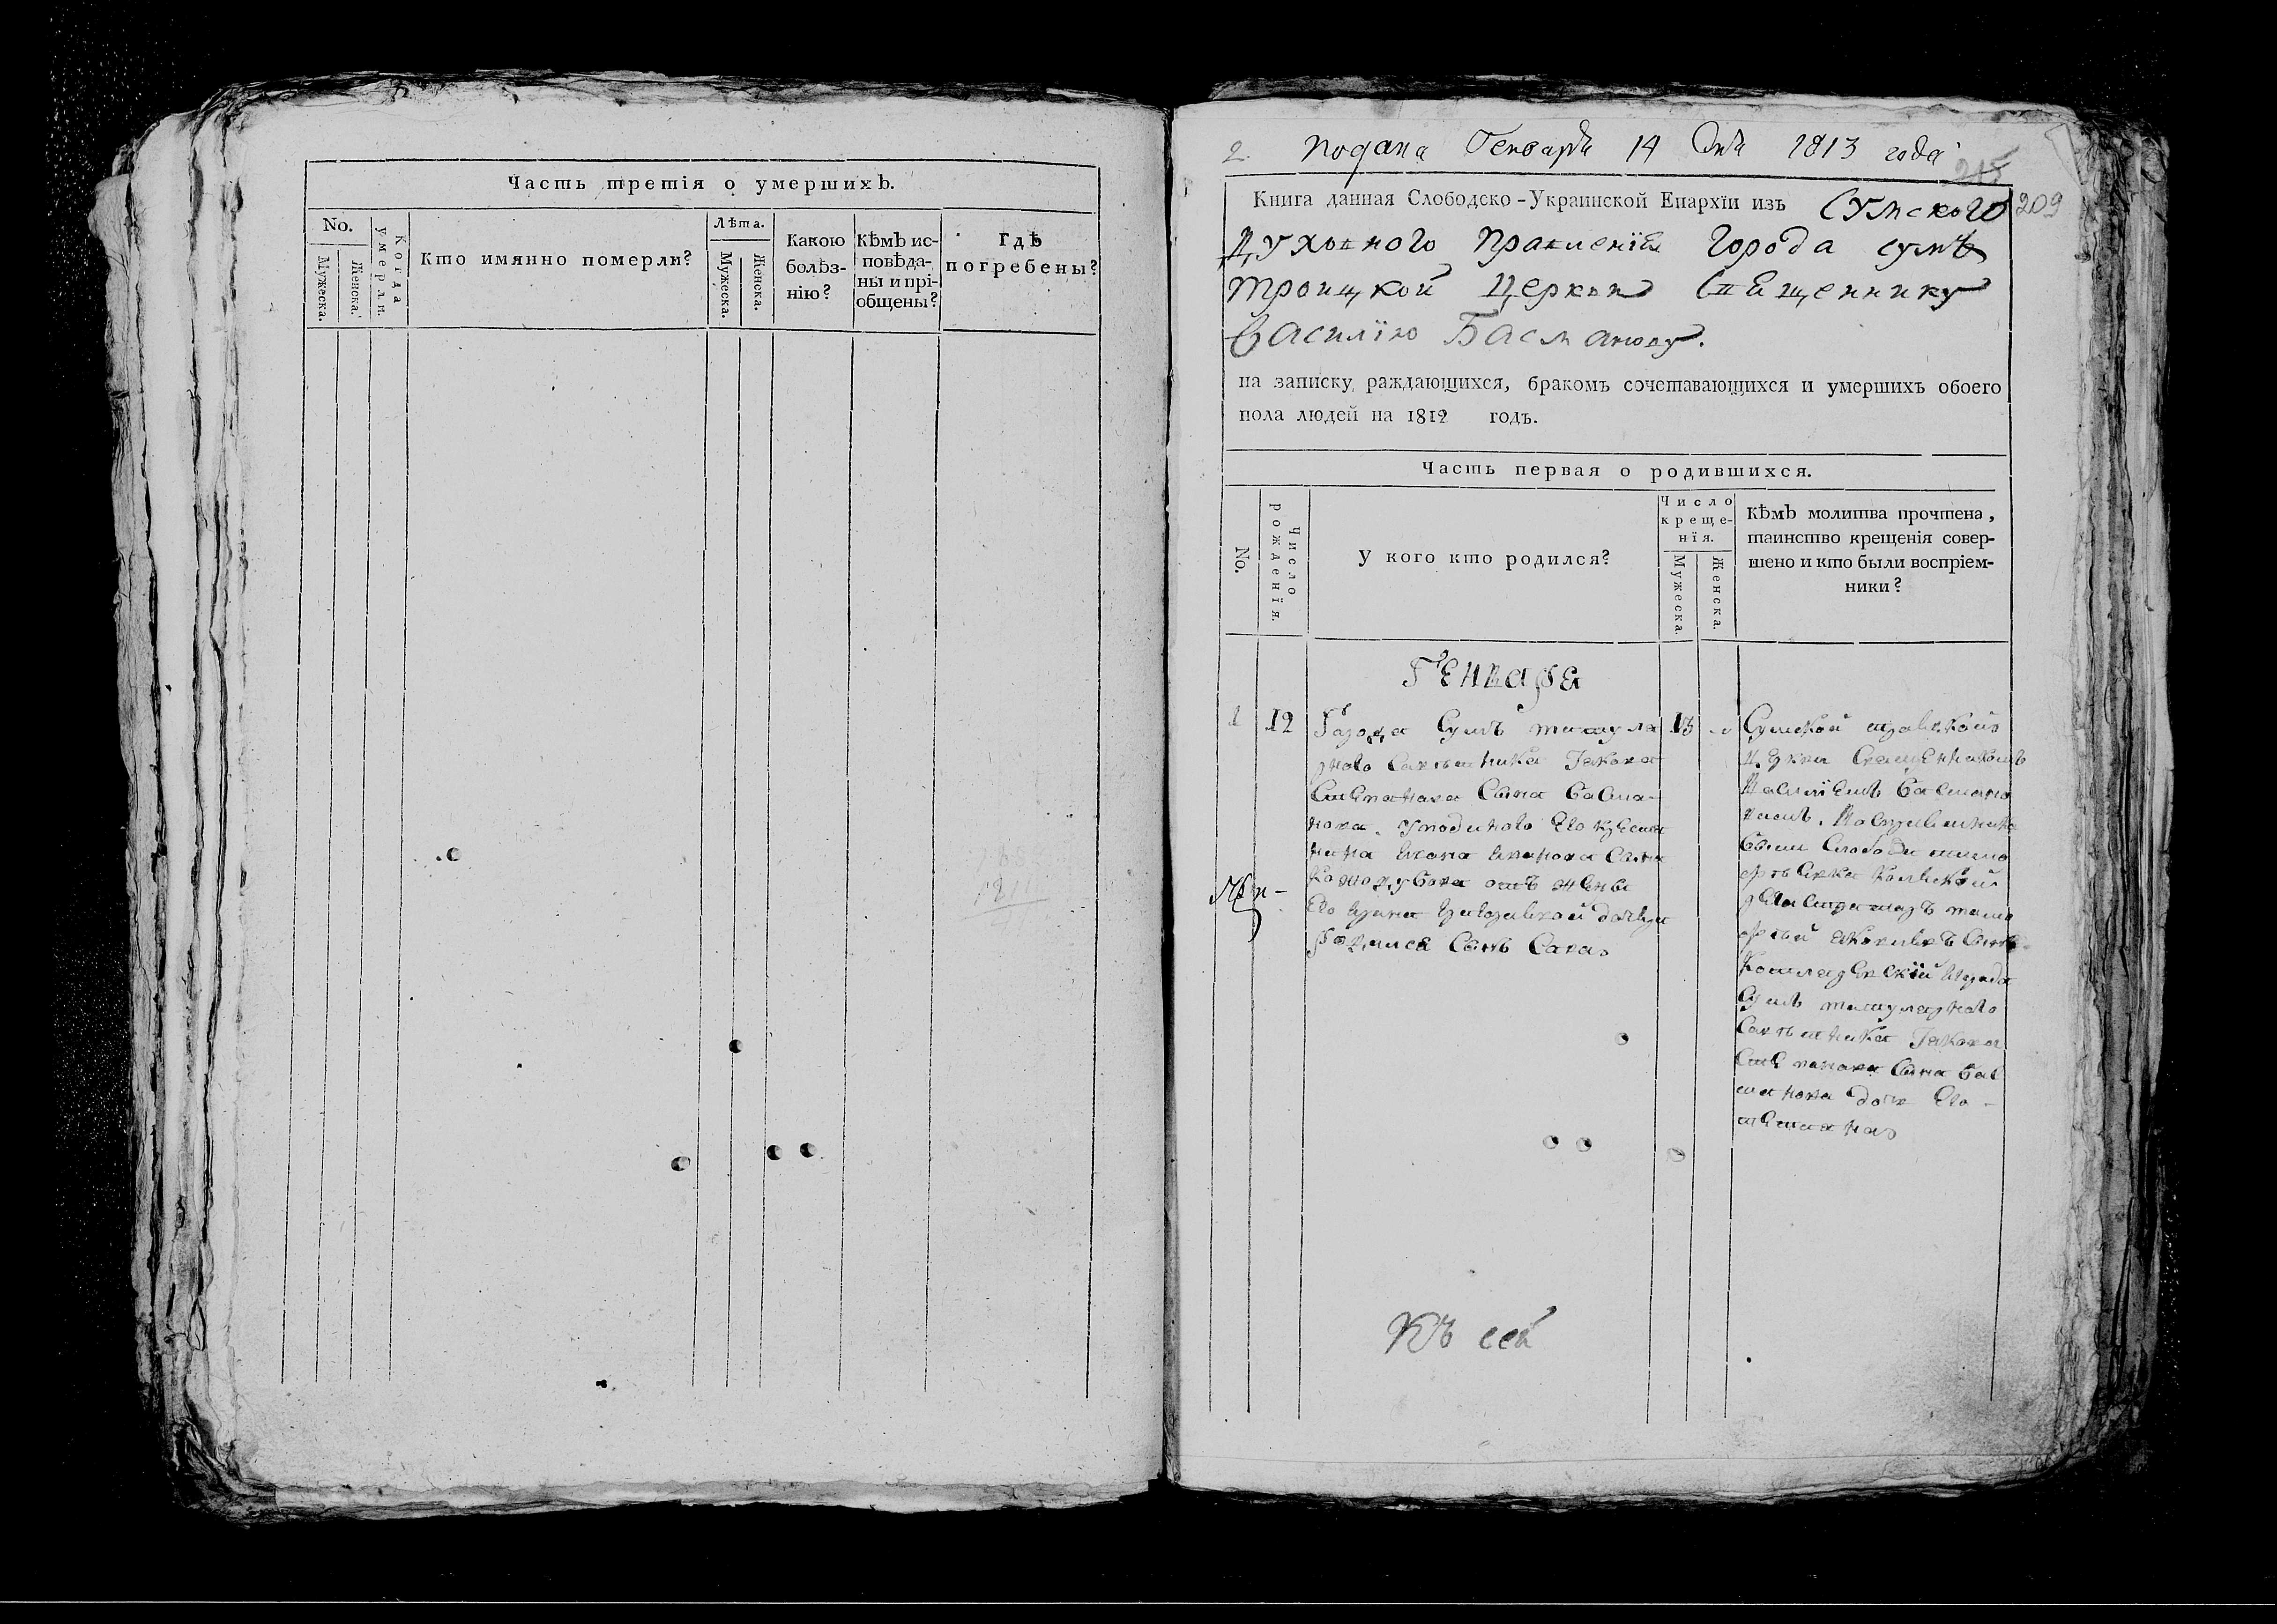 Часть третія о умершихъ.
No.
Мужеска.
Женска.
Когда умерли.
Кто имянно померли?
Лѣта.
Мужеска.
Женска.
Какою
болѣз-
нію?
Кѣмъ ис-
повѣда-
ны и прі-
общены?
Гдѣ
погребены?
1811
2. Подана Генваря 14 дня 1813 года
215
209
Книга данная Слободско-Украинской Епархїи изъ Сумского
Духовного Правленія города сумъ
троицкой церкви Священнику
Василїю Басманову.
на записку раждающихся, бракомъ сочетавающихся и умершихъ обоего
пола людей на 1812 годъ.
Часть первая о родившихся.
No.
Число рожденїя.
У кого кто родился?
Число
креще-
нїя.
Мужеска.
Женска.
Кѣмъ молитва прочтена,
таинство крещенія совер-
шено и кто были воспріем-
ники?
Генваря
1 12 Города Сумъ титуля 13
рного Савѣтника Іакова
Степанова Сына Басма-
нова. уподаного его крестя
нина Ивана Иванова Сына
Кожодубова отъ жены
Его Ирина Григориевой дочери
родился Сынъ Сава
Сумской троицкой
церкви Священникомъ
Василїемъ Басмано
вимъ. Воспрїемники
были Слободи
Сумъ титулярного
Савѣтника Іакова
Степанова Сына Бас
манова дочь Его
Къ сей